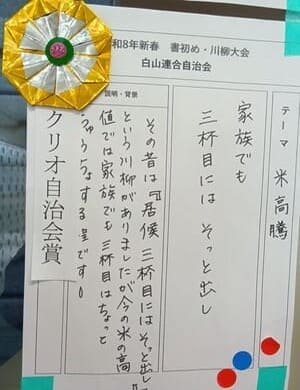 和8年新春 書初め・川柳大会
白山連合自治会
テーマ 米高騰
家族でも
三杯目には そっと出し
説明・背景
その昔は『居候 三杯目にはそっと出し』
という川柳がありましたが今の米の高
値では家族でも三杯目はちょっと
ちゅうちょする呈です。
クリオ自治会賞